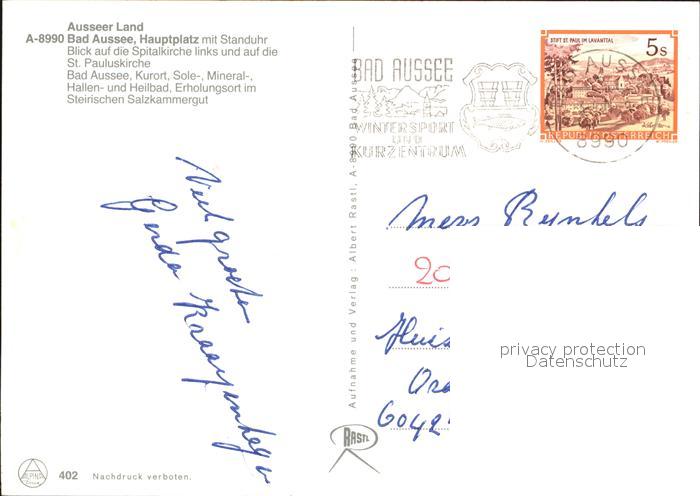 Ausseer Land
A-8990 Bad Aussee, Hauptplatz mit Standuhr
Blick auf die Spitalkirche links und auf die
St. Pauluskirche
Bad Aussee, Kurort, Sole-, Mineral-,
Hallen- und Heilbad, Erholungsort im
Steirischen Salzkammergut
Veel groeten
Gerda
ALPINA
402 Nachdruck verboten.
Aufnahme und Verlag: Albert Rastl, A-8990 Bad Aussee
RASTL
BAD AUSSEE
WINTERSPORT
UND
KURZENTRUM
8990
STIFT ST. PAUL IM LAVANTTAL
5s
REPUBLIK ÖSTERREICH
Mevr
20
Huis
6042
privacy protection
Datenschutz